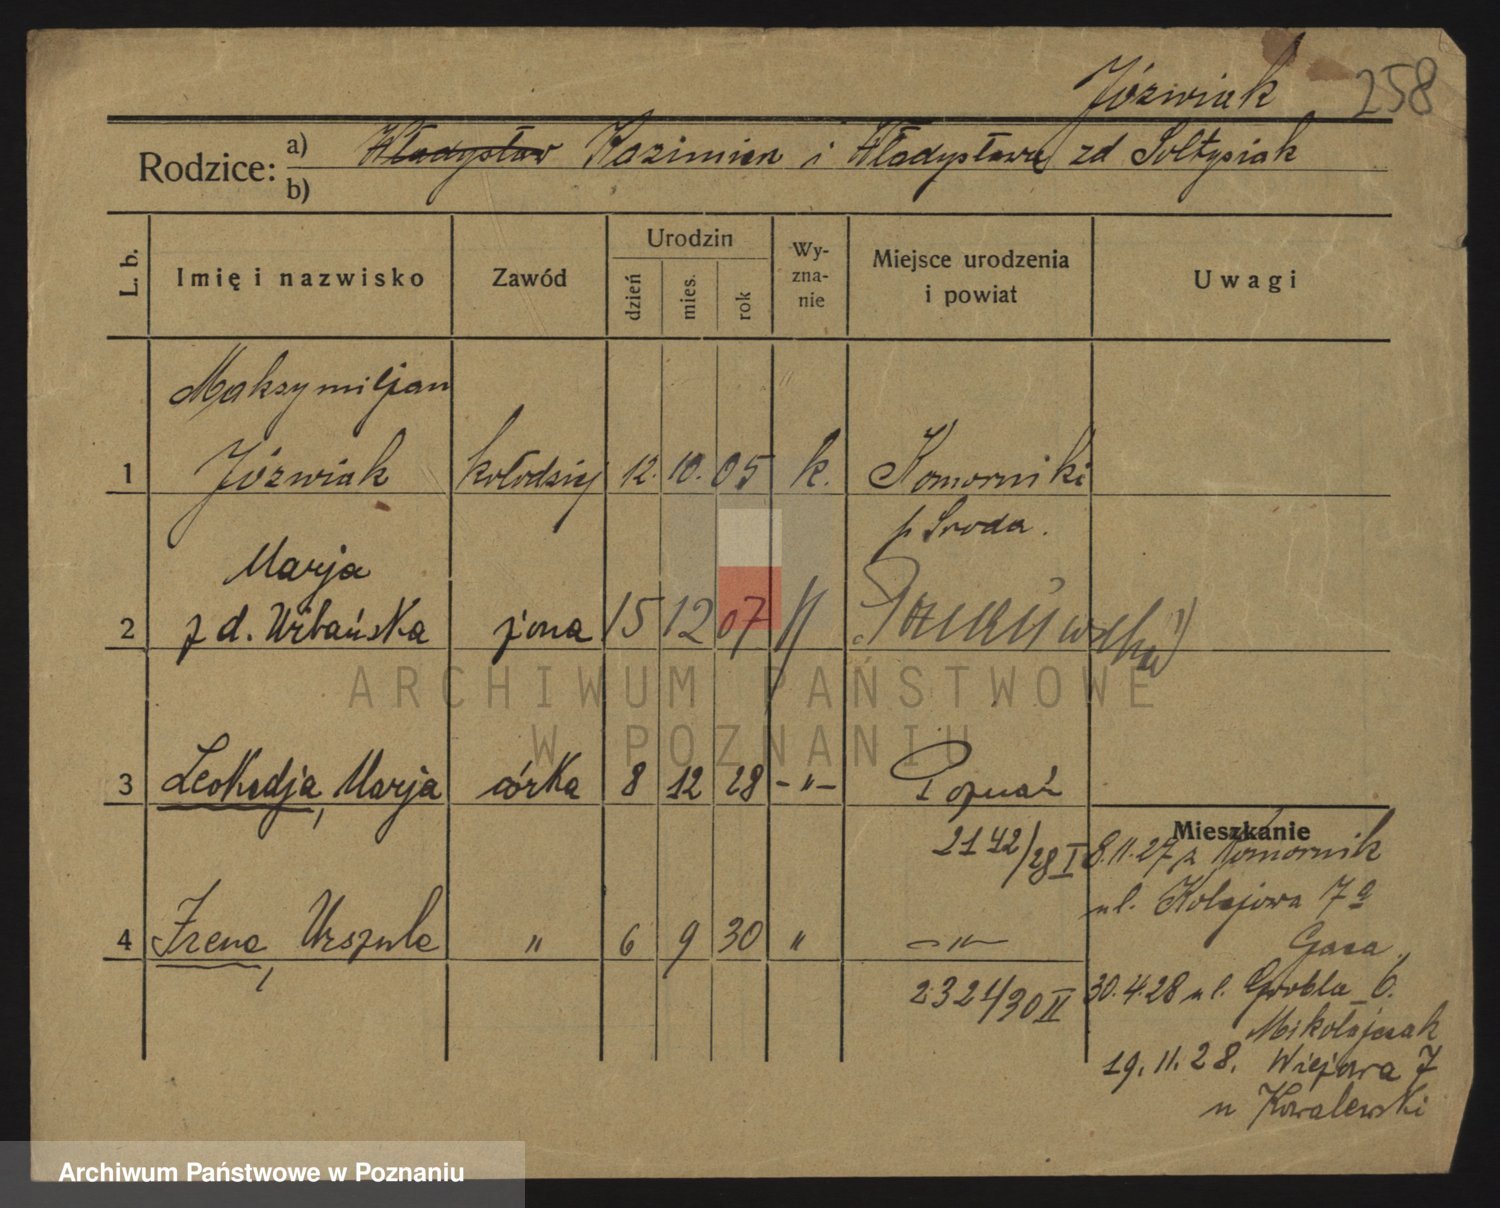 Józwiak 258
Rodzice: a) Władysław Kazimierz i Władysława zd Sołtysiak
b)
L. b. Imię i nazwisko Zawód Urodzin dzień mies. rok Wy-zna-nie Miejsce urodzenia i powiat Uwagi
Maksymiljan
1 Józwiak kołodziej 12. 10. 05 k. Komorniki
p Sroda.
Marja
2 z d. Urbańska żona 15 12 07 "
ARCHIWUM PAŃSTWOWE
W POZNANIU
3 Leokadja, Marja córka 8 12 28 -"- Poznań
2142/28 I
Mieszkanie
8.11.27 z Komornik
ul. Kolejowa 7a
4 Irena, Urszula " 6 9 30 " -"-
2321/30 II
Gaca,
30.4.28 ul. Grobla 6.
Mikołajczak
19.11.28. Wiejowa 7
u Kowalewski
Archiwum Państwowe w Poznaniu